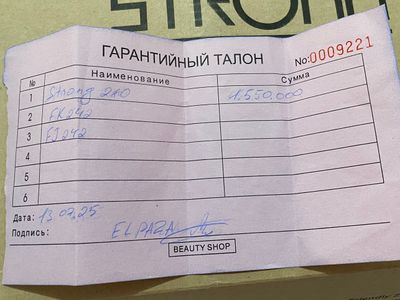 STRONG
ГАРАНТИЙНЫЙ ТАЛОН No:0009221
№ Наименование Сумма
1 Strong 210 1.550.000
2 FK242
3 EJ242
4
5
6
Дата: 13.07.25
Подпись: ELPAZA
BEAUTY SHOP